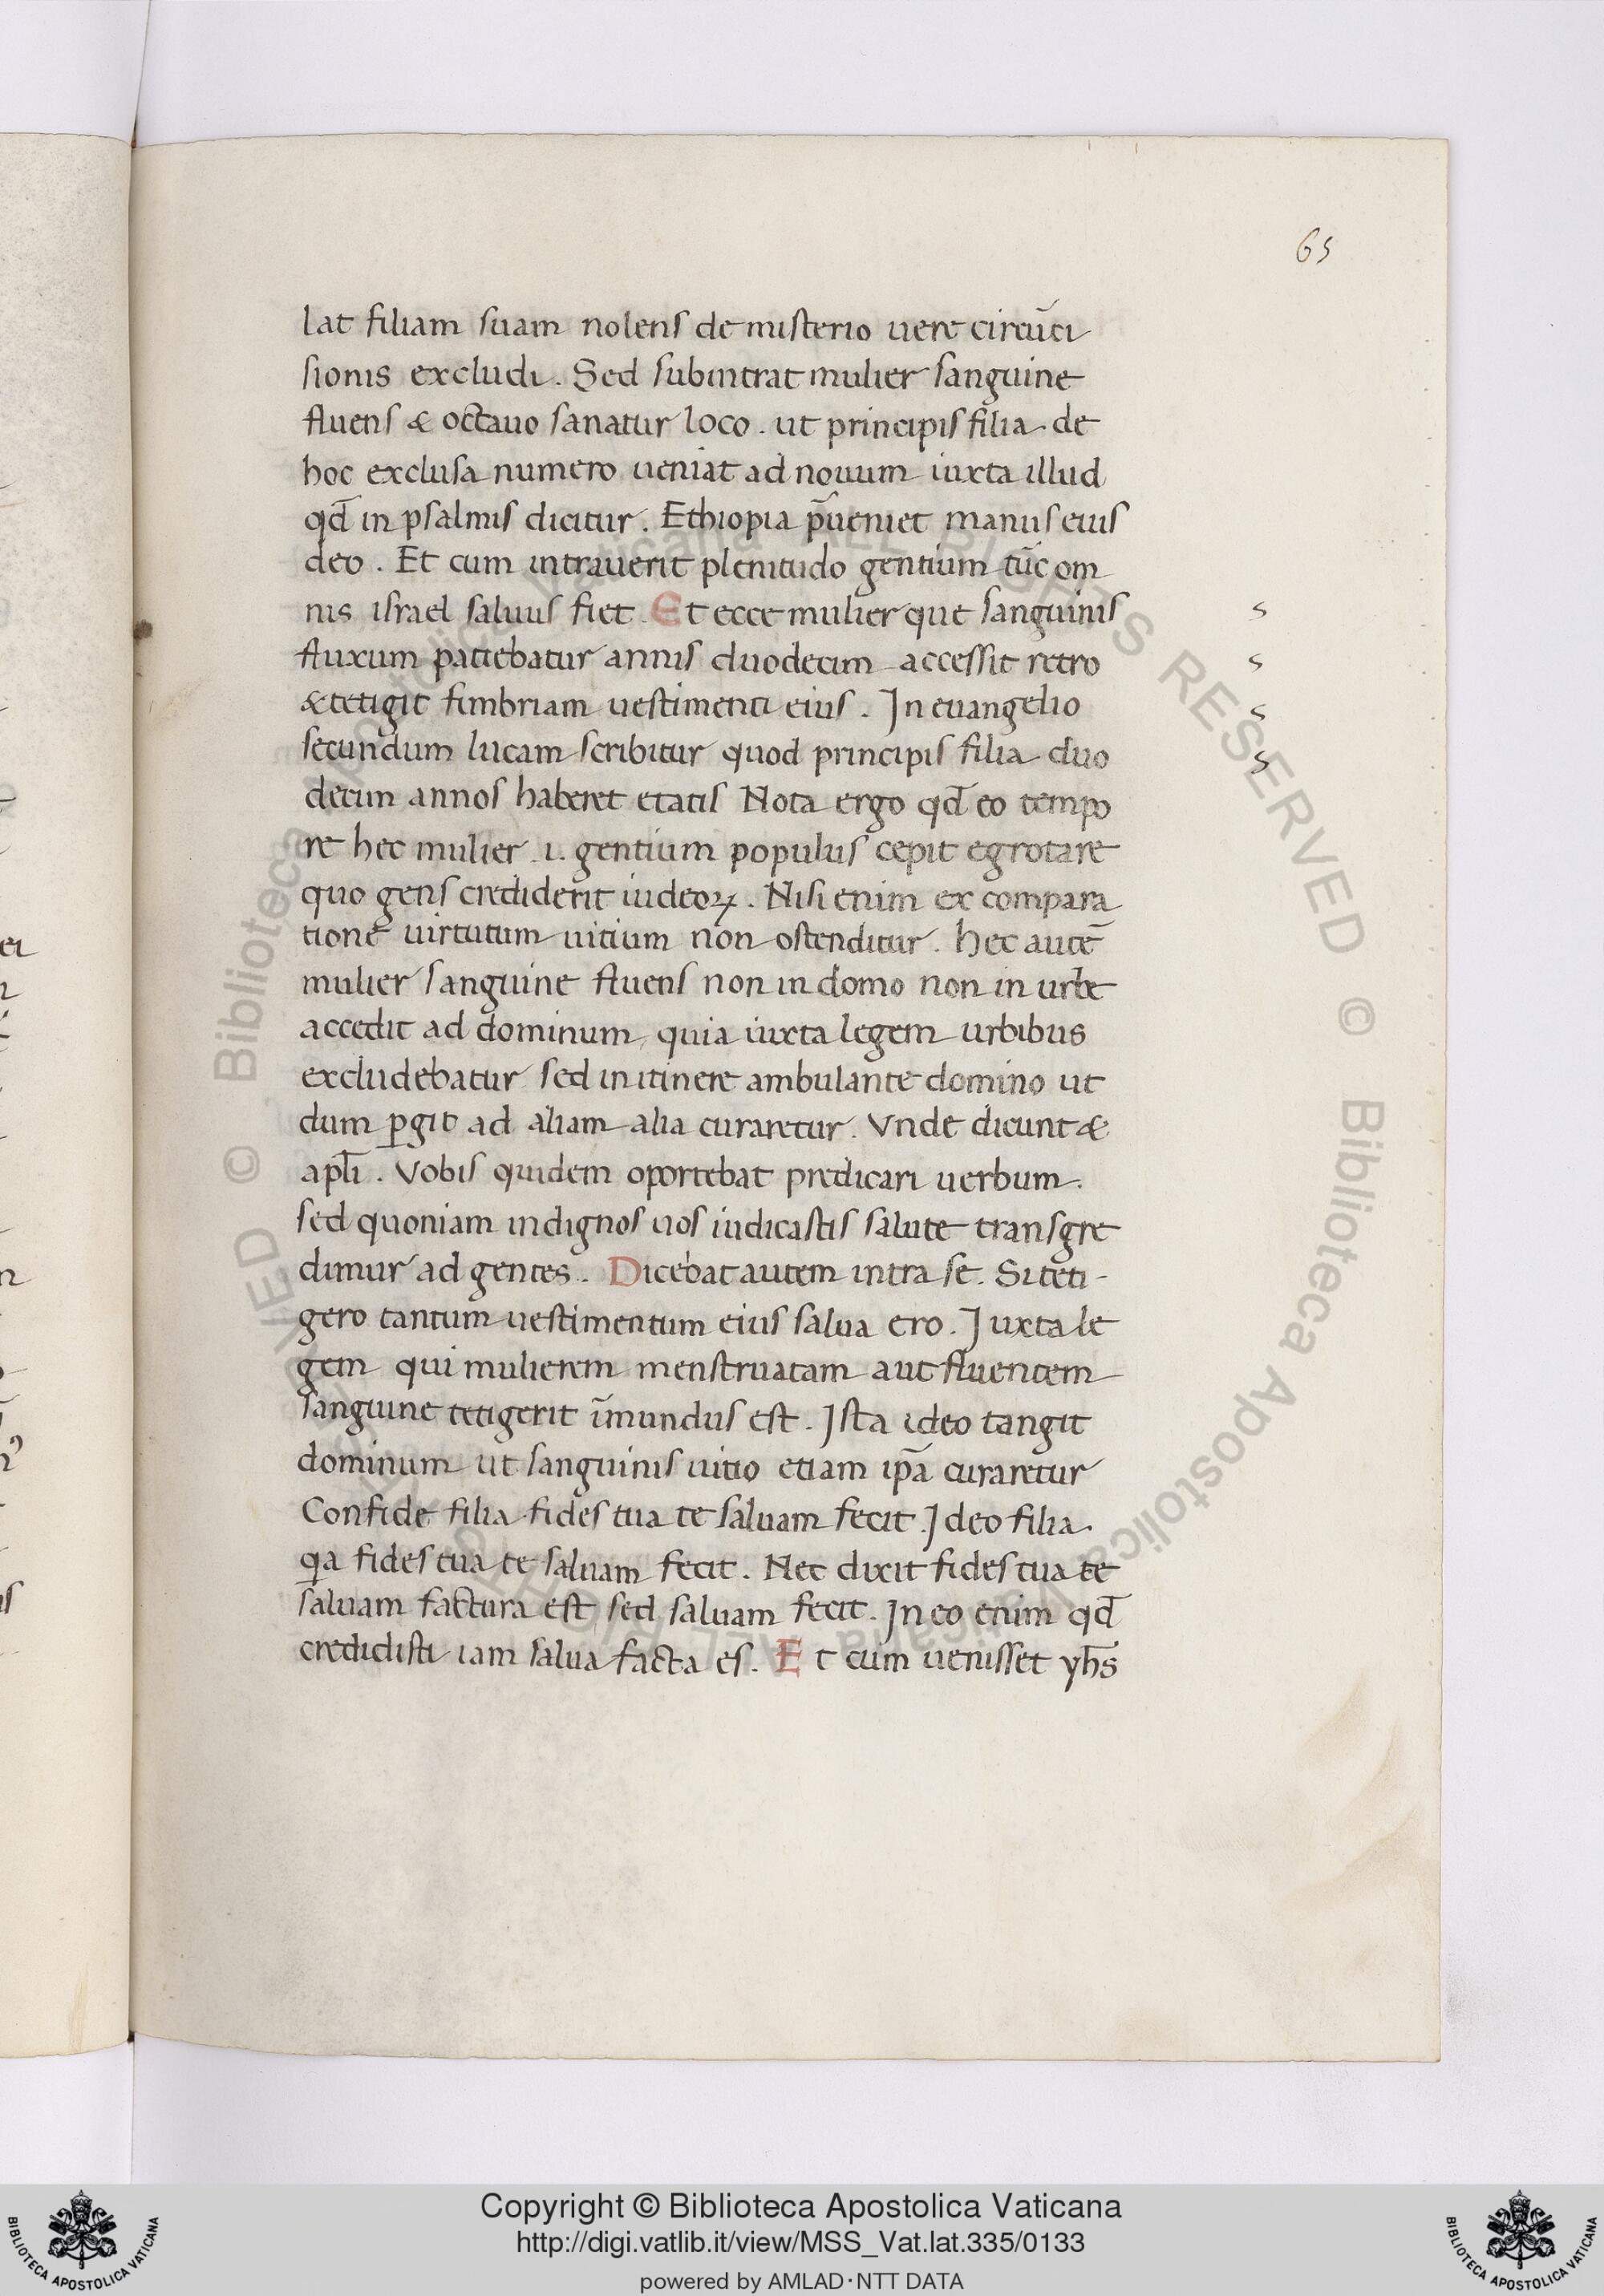 65
lat filiam suam nolens de misterio uere circūci
sionis excludi. Sed subintrat mulier sanguine
fluens & octauo sanatur loco. ut principis filia de
hoc exclusa numero ueniat ad nouum iuxta illud
qd̄ in psalmis dicitur. Ethiopia p̄ueniet manus eius
deo. Et cum intrauerit plenitudo gentium tūc om
nis israel saluus fiet. Et ecce mulier que sanguinis
fluxum patiebatur annis duodecim accessit retro
& tetigit fimbriam uestimenti eius. In euangelio
secundum lucam scribitur quod principis filia duo
decim annos haberet etatis Nota ergo qd̄ eo tempo
re hec mulier .i. gentium populus cepit egrotare
quo gens crediderit iudeoꝝ. Nisi enim ex compara
tione uirtutum uitium non ostenditur. hec autē
mulier sanguine fluens non in domo non in urbe
accedit ad dominum, quia iuxta legem urbibus
excludebatur sed in itinere ambulante domino ut
dum ꝑgit ad aliam alia curaretur. Vnde dicunt &
apl̄i. Vobis quidem oportebat predicari uerbum.
sed quoniam indignos uos iudicastis salute transgre
dimur ad gentes. Dicebat autem intra se. Si teti-
gero tantum uestimentum eius salua ero. Juxta le
gem qui mulierem menstruatam aut fluentem
sanguine tetigerit īmundus est. Ista ideo tangit
dominum ut sanguinis uitio etiam ip̄a curaretur
Confide filia fides tua te saluam fecit. Ideo filia.
qa fides tua te saluam fecit. Nec dixit fides tua te
saluam factura est sed saluam fecit. In eo enim qd̄
credidisti iam salua facta es. Et cum uenisset yh̄s
s
s
s
s
Copyright © Biblioteca Apostolica Vaticana
http://digi.vatlib.it/view/MSS_Vat.lat.335/0133
powered by AMLAD·NTT DATA
BIBLIOTECA APOSTOLICA VATICANA
BIBLIOTECA APOSTOLICA VATICANA